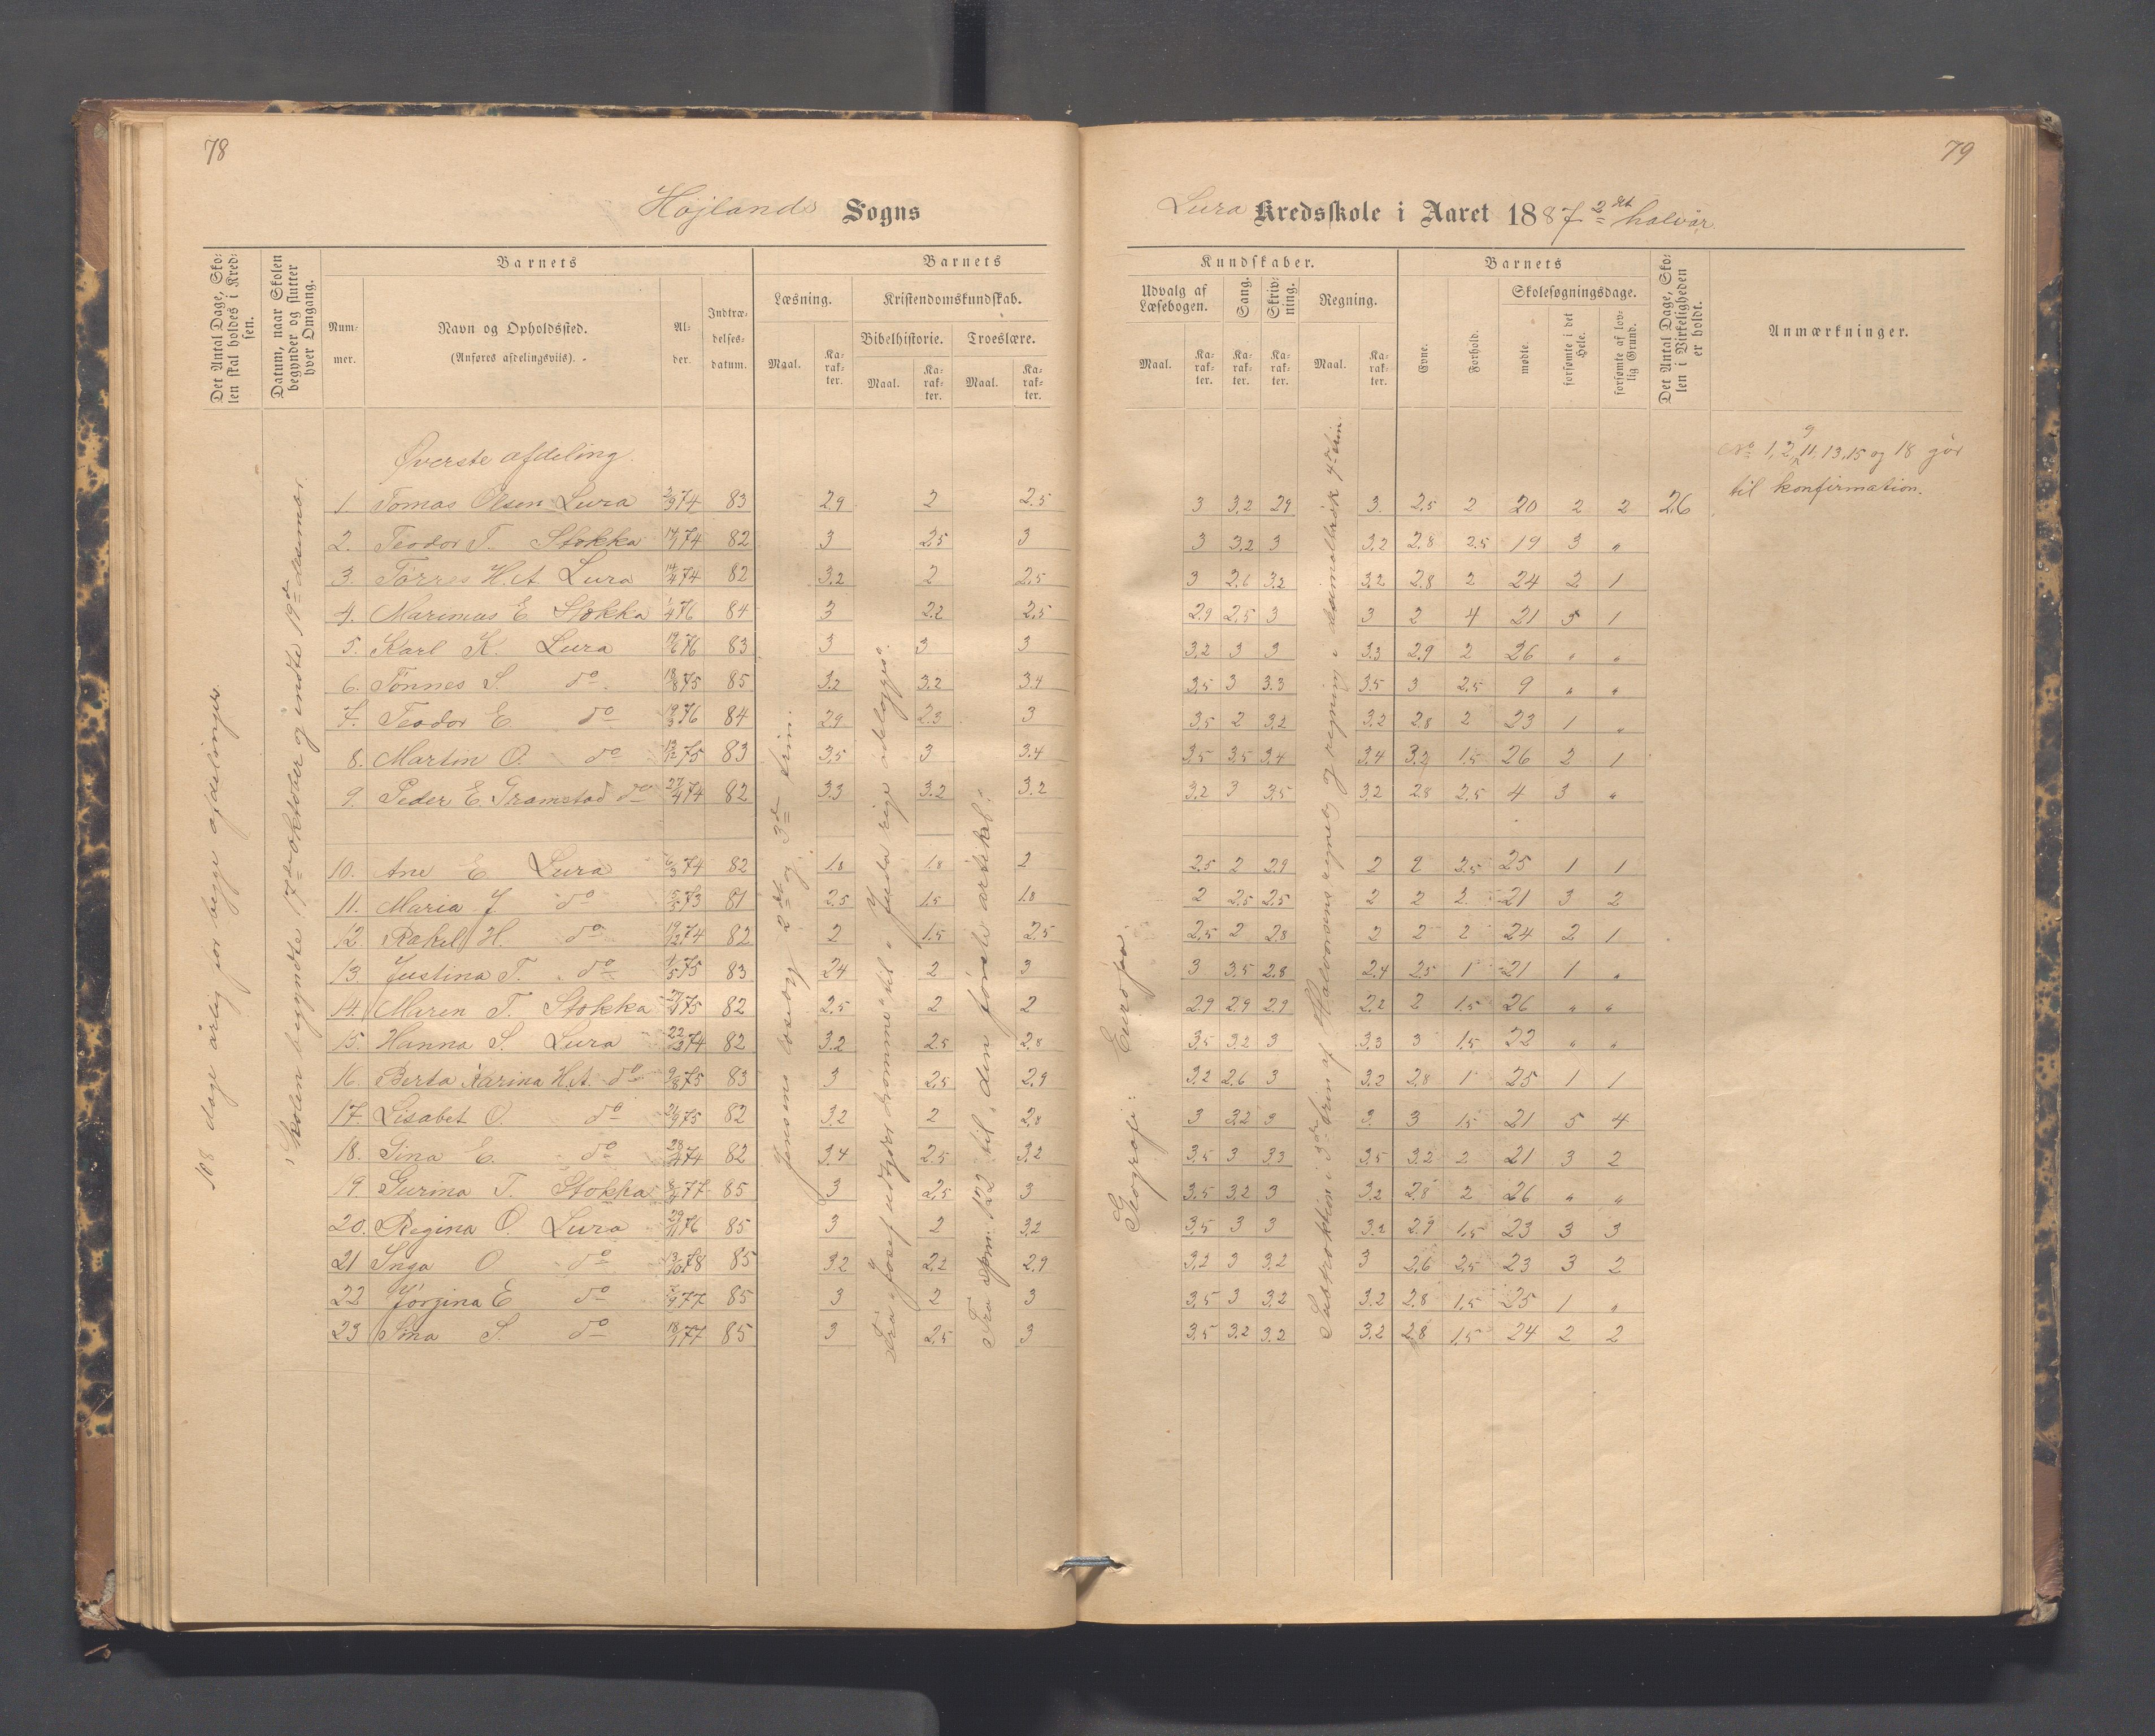 78
Højlands Sogns
Det Antal Dage, Sko-
len skal holdes i Kred-
sen.
Datum, naar Skolen
begynder og slutter
hver Omgang.
Barnets
Num-
mer.
Navn og Opholdssted.
(Anføres afdelingsviis).
Al-
der.
Indtræ-
delses-
datum.
Barnets
Læsning.
Maal.
Ka-
rak-
ter.
Kristendomskundskab.
Bibelhistorie.
Maal.
Ka-
rak-
ter.
Troeslære.
Maal.
Ka-
rak-
ter.
108 dage årlig for begge afdelinger.
Skolen begyndte 17de oktober og endte 19de desember.
Jensens læsebog 2det og 3die trin.
Fra „Josef udtyder drømme“ til „Juda rige ødelægges“.
Fra spm. 122 til „den første artikel“.
Øverste afdeling.
1 Tomas Olsen Lura 2/9 74 83 2.9 2 2.5
2. Teodor T. Stokka 74 82 3 2.5 3
3. Tørres H.A. Lura 74 82 3.2 2 2.5
4. Marimus E Stokka 76 84 3 2.2 2.5
5. Karl K. Lura 19/6 76 83 3 3 3
6. Tønnes S. do 18/8 75 85 3.2 3.2 3.4
7. Teodor E. do 76 84 2.9 2.3 3
8. Martin O. do 75 83 3.5 3 3.4
9. Peder E. Gramstad do 27/4 74 82 3.3 3.2 3.2
10. Ane E. Lura 6/3 74 82 1.8 1.8 2
11. Maria J. do 73 81 2.5 1.5 1.8
12. Rakel H. do 19/12 74 82 2 1.5 2.5
13. Justina T. do 1/5 75 83 2.4 2 3
14. Maren T. Stokka 75 82 2.5 2 2
15. Hanna S. Lura 74 82 3.2 2.5 2.8
16. Berta Karina H.A. do 9/8 75 83 3 2.5 2.9
17. Lisabet O. do 75 82 3.2 2 2.8
18. Sina E. do 74 82 3.4 2.5 3.2
19 Gurina T. Stokka 77 85 3 2.5 3
20. Regina O. Lura 29/11 76 85 3 2 3.2
21 Inga O do 13/10 78 85 3.2 2.2 2.9
22 Jørgina E do 77 85 3 2 3
23 Sina S. do 77 85 3 2.5 3
79
Lura Kredsskole i Aaret 1887 2det halvår.
Kundskaber.
Udvalg af
Læsebogen.
Maal.
Ka-
rak-
ter.
Sang.
Ka-
rak-
ter.
Skriv-
ning.
Ka-
rak-
ter.
Regning.
Maal.
Ka-
rak-
ter.
Barnets
Evne.
Forhold.
Skolesøgningsdage.
mødte.
forsømte i det
Hele.
forsømte af lov-
lig Grund.
Det Antal Dage, Sko-
len i Virkeligheden
er holdt.
Anmærkninger.
Geografi: Europa.
Subtraktion i 3die trin af Halvorsens regnebog og regning i desimalbrøk 4de trin.
No 1, 2, 9 11, 13, 15 og 18 går
til konfirmation.
3 3.2 2.9 3. 2.5 2 20 2 2 26
3 3.2 3 3.2 2.8 2.5 19 3 „
3 2.6 3.2 3.2 2.8 2 24 2 1
2.9 2.5 3 3 2 4 21 5 1
3.2 3 3 3.3 2.9 2 26 „ „
3.5 3 3.3 3.5 3 2.5 9 „ „
3.5 2 3.2 3.2 2.8 2 23 1 „
3.5 3.5 3.4 3.4 3.2 1.5 26 2 1
3.2 3 3.5 3.2 2.8 2.5 4 3 „
2.5 2 2.9 2 2 2.5 25 1 1
2 2.5 2.5 2 2 2. 21 3 2
2.5 2 2.8 2 2 2 24 2 1
3 3.5 2.8 2.4 2.5 1 21 1 „
2.9 2.9 2.9 2.2 2 1.5 26 „ „
3.5 3.2 3 3.3 3 1.5 22 „ „
3.2 2.6 3 3.2 2.8 1 25 1 1
3 3.2 3 3. 3 1.5 21 5 4
3.5 3 3.3 3.5 3.2 2 21 3 2
3.5 3.2 3 3.2 2.8 2 26 „ „
3.5 3 3 3.2 2.9 1.5 23 3 3
3.2 3 3.2 3 2.6 2.5 23 3 2
3.5 3 3.2 3.2 2.8 1.5 25 1 „
3.5 3.2 3.2 3.2 2.8 1.5 24 2 2